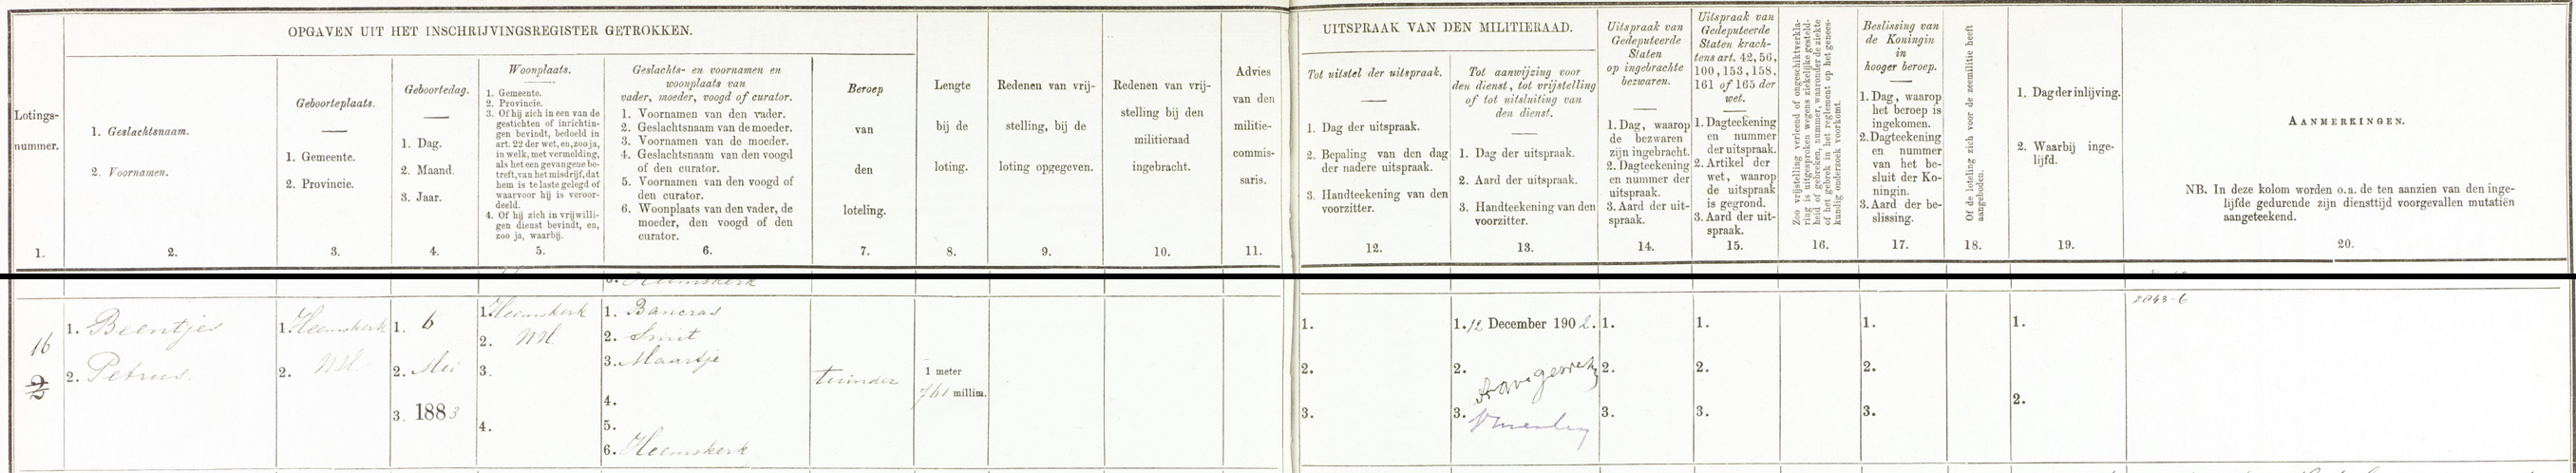 OPGAVEN UIT HET INSCHRIJVINGSREGISTER GETROKKEN.
UITSPRAAK VAN DEN MILITIERAAD.
Lotings-
nummer.
1.
1. Geslachtsnaam.
2. Voornamen.
2.
Geboorteplaats.
1. Gemeente.
2. Provincie.
3.
Geboortedag.
1. Dag.
2. Maand.
3. Jaar.
4.
Woonplaats.
1. Gemeente.
2. Provincie.
3. Of hij zich in een van de
gestichten of inrichtin-
gen bevindt, bedoeld in
art. 22 der wet, en, zoo ja,
in welk, met vermelding,
als het een gevangene be-
treft, van het misdrijf, dat
hem is te laste gelegd of
waarvoor hij is veroor-
deeld.
4. Of hij zich in vrijwilli-
gen dienst bevindt, en,
zoo ja, waarbij.
5.
Geslachts- en voornamen en
woonplaats van
vader, moeder, voogd of curator.
1. Voornamen van den vader.
2. Geslachtsnaam van de moeder.
3. Voornamen van de moeder.
4. Geslachtsnaam van den voogd
of den curator.
5. Voornamen van den voogd of
den curator.
6. Woonplaats van den vader, de
moeder, den voogd of den
curator.
6.
Beroep
van
den
loteling.
7.
Lengte
bij de
loting.
8.
Redenen van vrij-
stelling, bij de
loting opgegeven.
9.
Redenen van vrij-
stelling bij den
militieraad
ingebracht.
10.
Advies
van den
militie-
commis-
saris.
11.
Tot uitstel der uitspraak.
1. Dag der uitspraak.
2. Bepaling van den dag
der nadere uitspraak.
3. Handteekening van den
voorzitter.
12.
Tot aanwijzing voor
den dienst, tot vrijstelling
of tot uitsluiting van
den dienst.
1. Dag der uitspraak.
2. Aard der uitspraak.
3. Handteekening van den
voorzitter.
13.
Uitspraak van
Gedeputeerde
Staten
op ingebrachte
bezwaren.
1. Dag, waarop
de bezwaren
zijn ingebracht.
2. Dagteekening
en nummer der
uitspraak.
3. Aard der uit-
spraak.
14.
Uitspraak van
Gedeputeerde
Staten krach-
tens art. 42, 56,
100, 153, 158,
161 of 165 der
wet.
1. Dagteekening
en nummer
der uitspraak.
2. Artikel der
wet, waarop
de uitspraak
is gegrond.
3. Aard der uit-
spraak.
15.
Zoo vrijstelling verleend of ongeschiktverkla-
ring is uitgesproken wegens ziekelijke gesteld-
heid of gebreken, nummer, waaronder de ziekte
of het gebrek in het reglement op het genees-
kundig onderzoek voorkomt.
16.
Beslissing van
de Koningin
in
hooger beroep.
1. Dag, waarop
het beroep is
ingekomen.
2. Dagteekening
en nummer
van het be-
sluit der Ko-
ningin.
3. Aard der be-
slissing.
17.
Of de loteling zich voor de zeemilitie heeft
aangeboden.
18.
1. Dag der inlijving.
2. Waarbij inge-
lijfd.
19.
AANMERKINGEN.
NB. In deze kolom worden o.a. de ten aanzien van den inge-
lijfde gedurende zijn diensttijd voorgevallen mutatiën
aangeteekend.
20.
6. Heemskerk
16
2
1. Beentjes
2. Petrus.
1. Heemskerk
2. NH.
1. 6
2. Mei
3. 1883
1. Heemskerk
2. NH.
3.
4.
1. Bancras
2. Smit
3. Maartje
4.
5.
6. Heemskerk
tuinder
1 meter
761 millim.
1.
2.
3.
1. 12 December 1902.
2.
3.
1.
2.
3.
1.
2.
3.
1.
2.
3.
1.
2.
2843-6